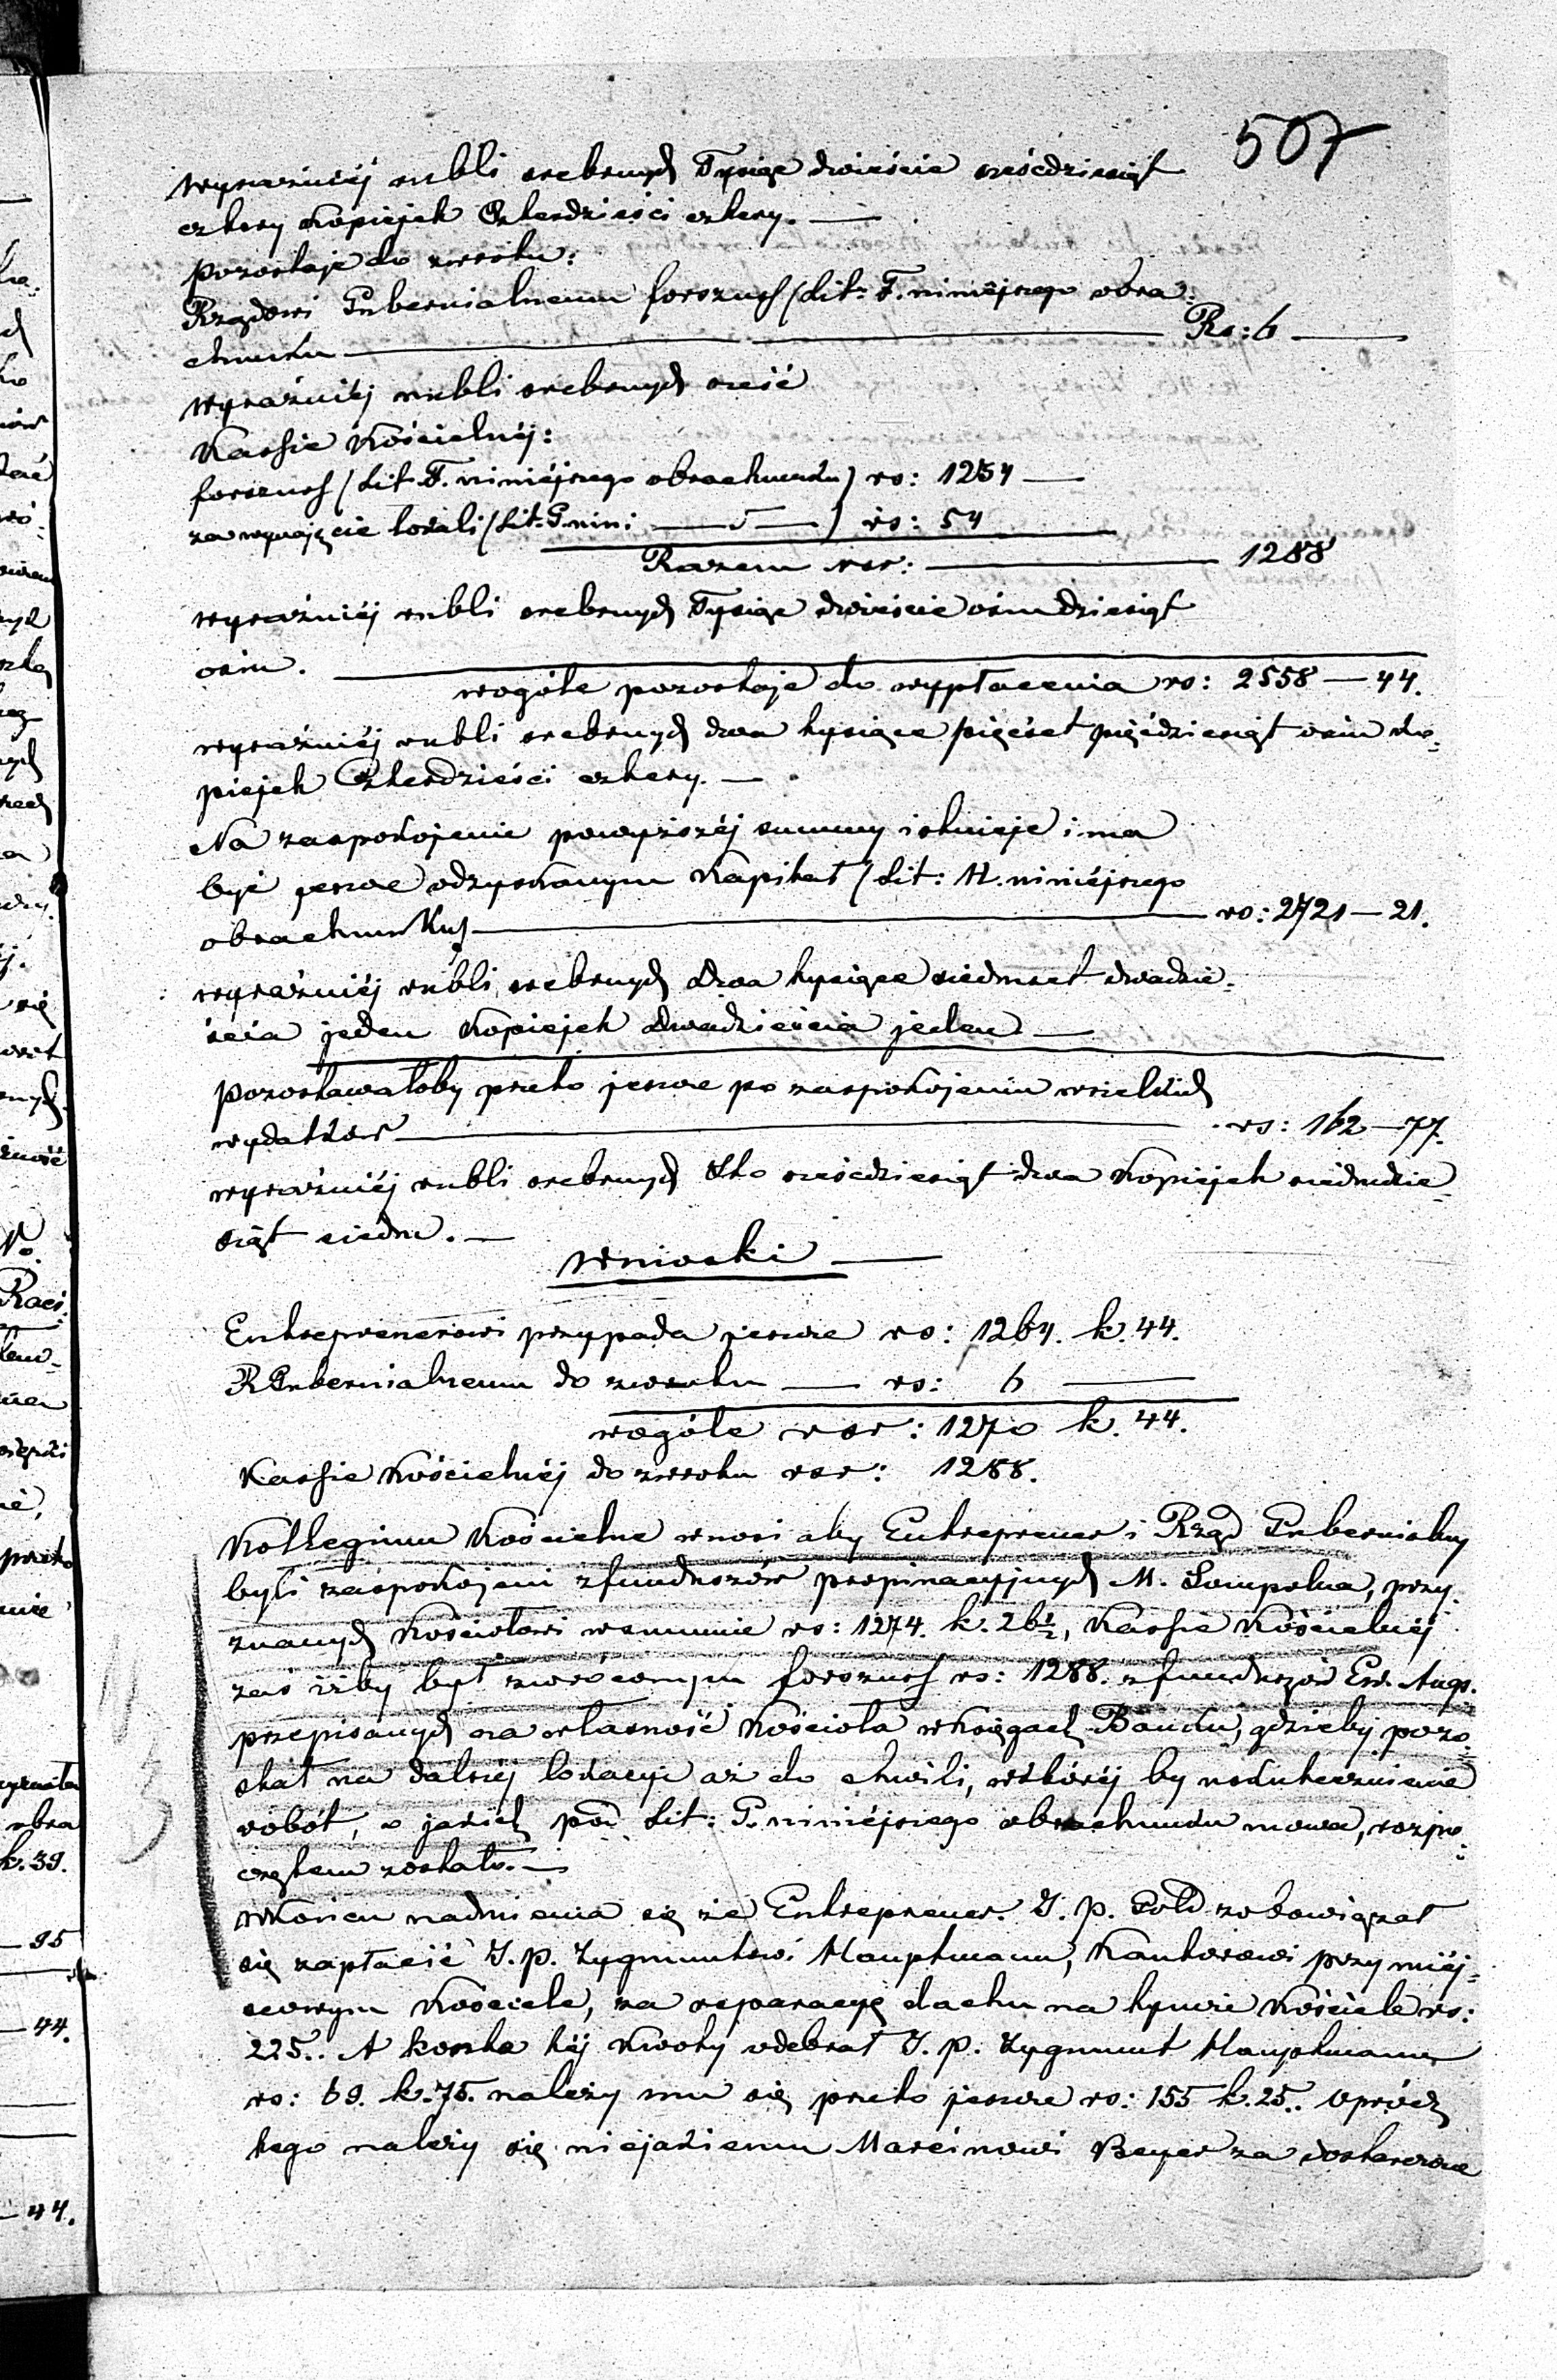 507
wyraźniéj rubli srebrnych Tysiąc dwieście sześćdziesiąt
cztery kopiejek Czterdzieści cztery. —
Pozostaje do zwrotu:
Rządowi Gubernialnemu forszus (Lit: F. niniejszego obra-
chunku — Rs: 6 —
wyraźniéj rubli srebrnych sześć
Kassie Kościelnéj:
forszus (Lit. F. niniéjszego obrachunku) rs: 1234 —
za wynajęcie lokali (Lit: G. nin: — " — ) rs: 54
Razem rsr: — 1288
wyraźniéj rubli srebrnych Tysiąc dwieście ośmdziesiąt
ośm. —
wogóle pozostaje do wypłacenia rs: 2558 — 44.
wyraźniéj rubli srebrnych dwa tysiące pięćset pięćdziesiąt ośm ko-
piejek Czterdzieści cztery. —
Na zaspokojenie powyższéj summy istnieje i ma
być jeszcze odzyskanym Kapitał (Lit: H. niniéjszego
obrachunku) — rs: 2721 — 21.
wyraźniéj rubli srebrnych dwa tysiące siedmset dwadzie-
ścia jeden kopiejek dwadzieścia jeden —
Pozostawałoby przeto jeszcze po zaspokojeniu wszelkich
wydatków — rs: 162 — 77.
wyraźniéj rubli srebrnych Sto sześćdziesiąt dwa kopiejek siedmdzie-
siąt siedm. —
Wnioski —
Entreprenerowi przypada jeszcze rs: 1264. k. 44.
R Gubernialnemu do zwrotu — rs: 6 —
wogóle rsr: 1270 k. 44.
Kassie Kościelnéj do zwrotu rsr: 1288.
Kollegium Kościelne wnosi aby Entreprener i Rząd Gubernialny
byli zaspokojeni z funduszów propinacyjnych M. Sompolna, przy-
znanych Kościołowi w summie rs: 1274. k. 26½, Kassie Kościelnéj
zaś iżby był zwróconym forszus rs: 1288. z funduszów Ew. Augs.
przepisanych na własność Kościoła w księgach Banku, gdzieby pozo-
stał na dalszéj lokacyi aż do chwili, w któréj by uskutecznienie
robót, o jakich pod Lit: G. niniéjszego obrachunku mowa, rozpo-
czętem zostało. —
W końcu nadmienia się że Entreprener J. p. Gold zobowiązał
się zapłacić J. p. Zygmuntowi Hauptmann, Kantorowi przy miéj-
scowym Kościele, za reparacyę dachu na tymże Kościele rs:
225. A konto téj kwoty odebrał J. p. Zygmunt Hauptmann
rs: 69. k. 75. należy mu się przeto jeszcze rs: 155 k. 25. Oprócz
tego należy się niejakiemu Marcinowi Beyer za dostarczone